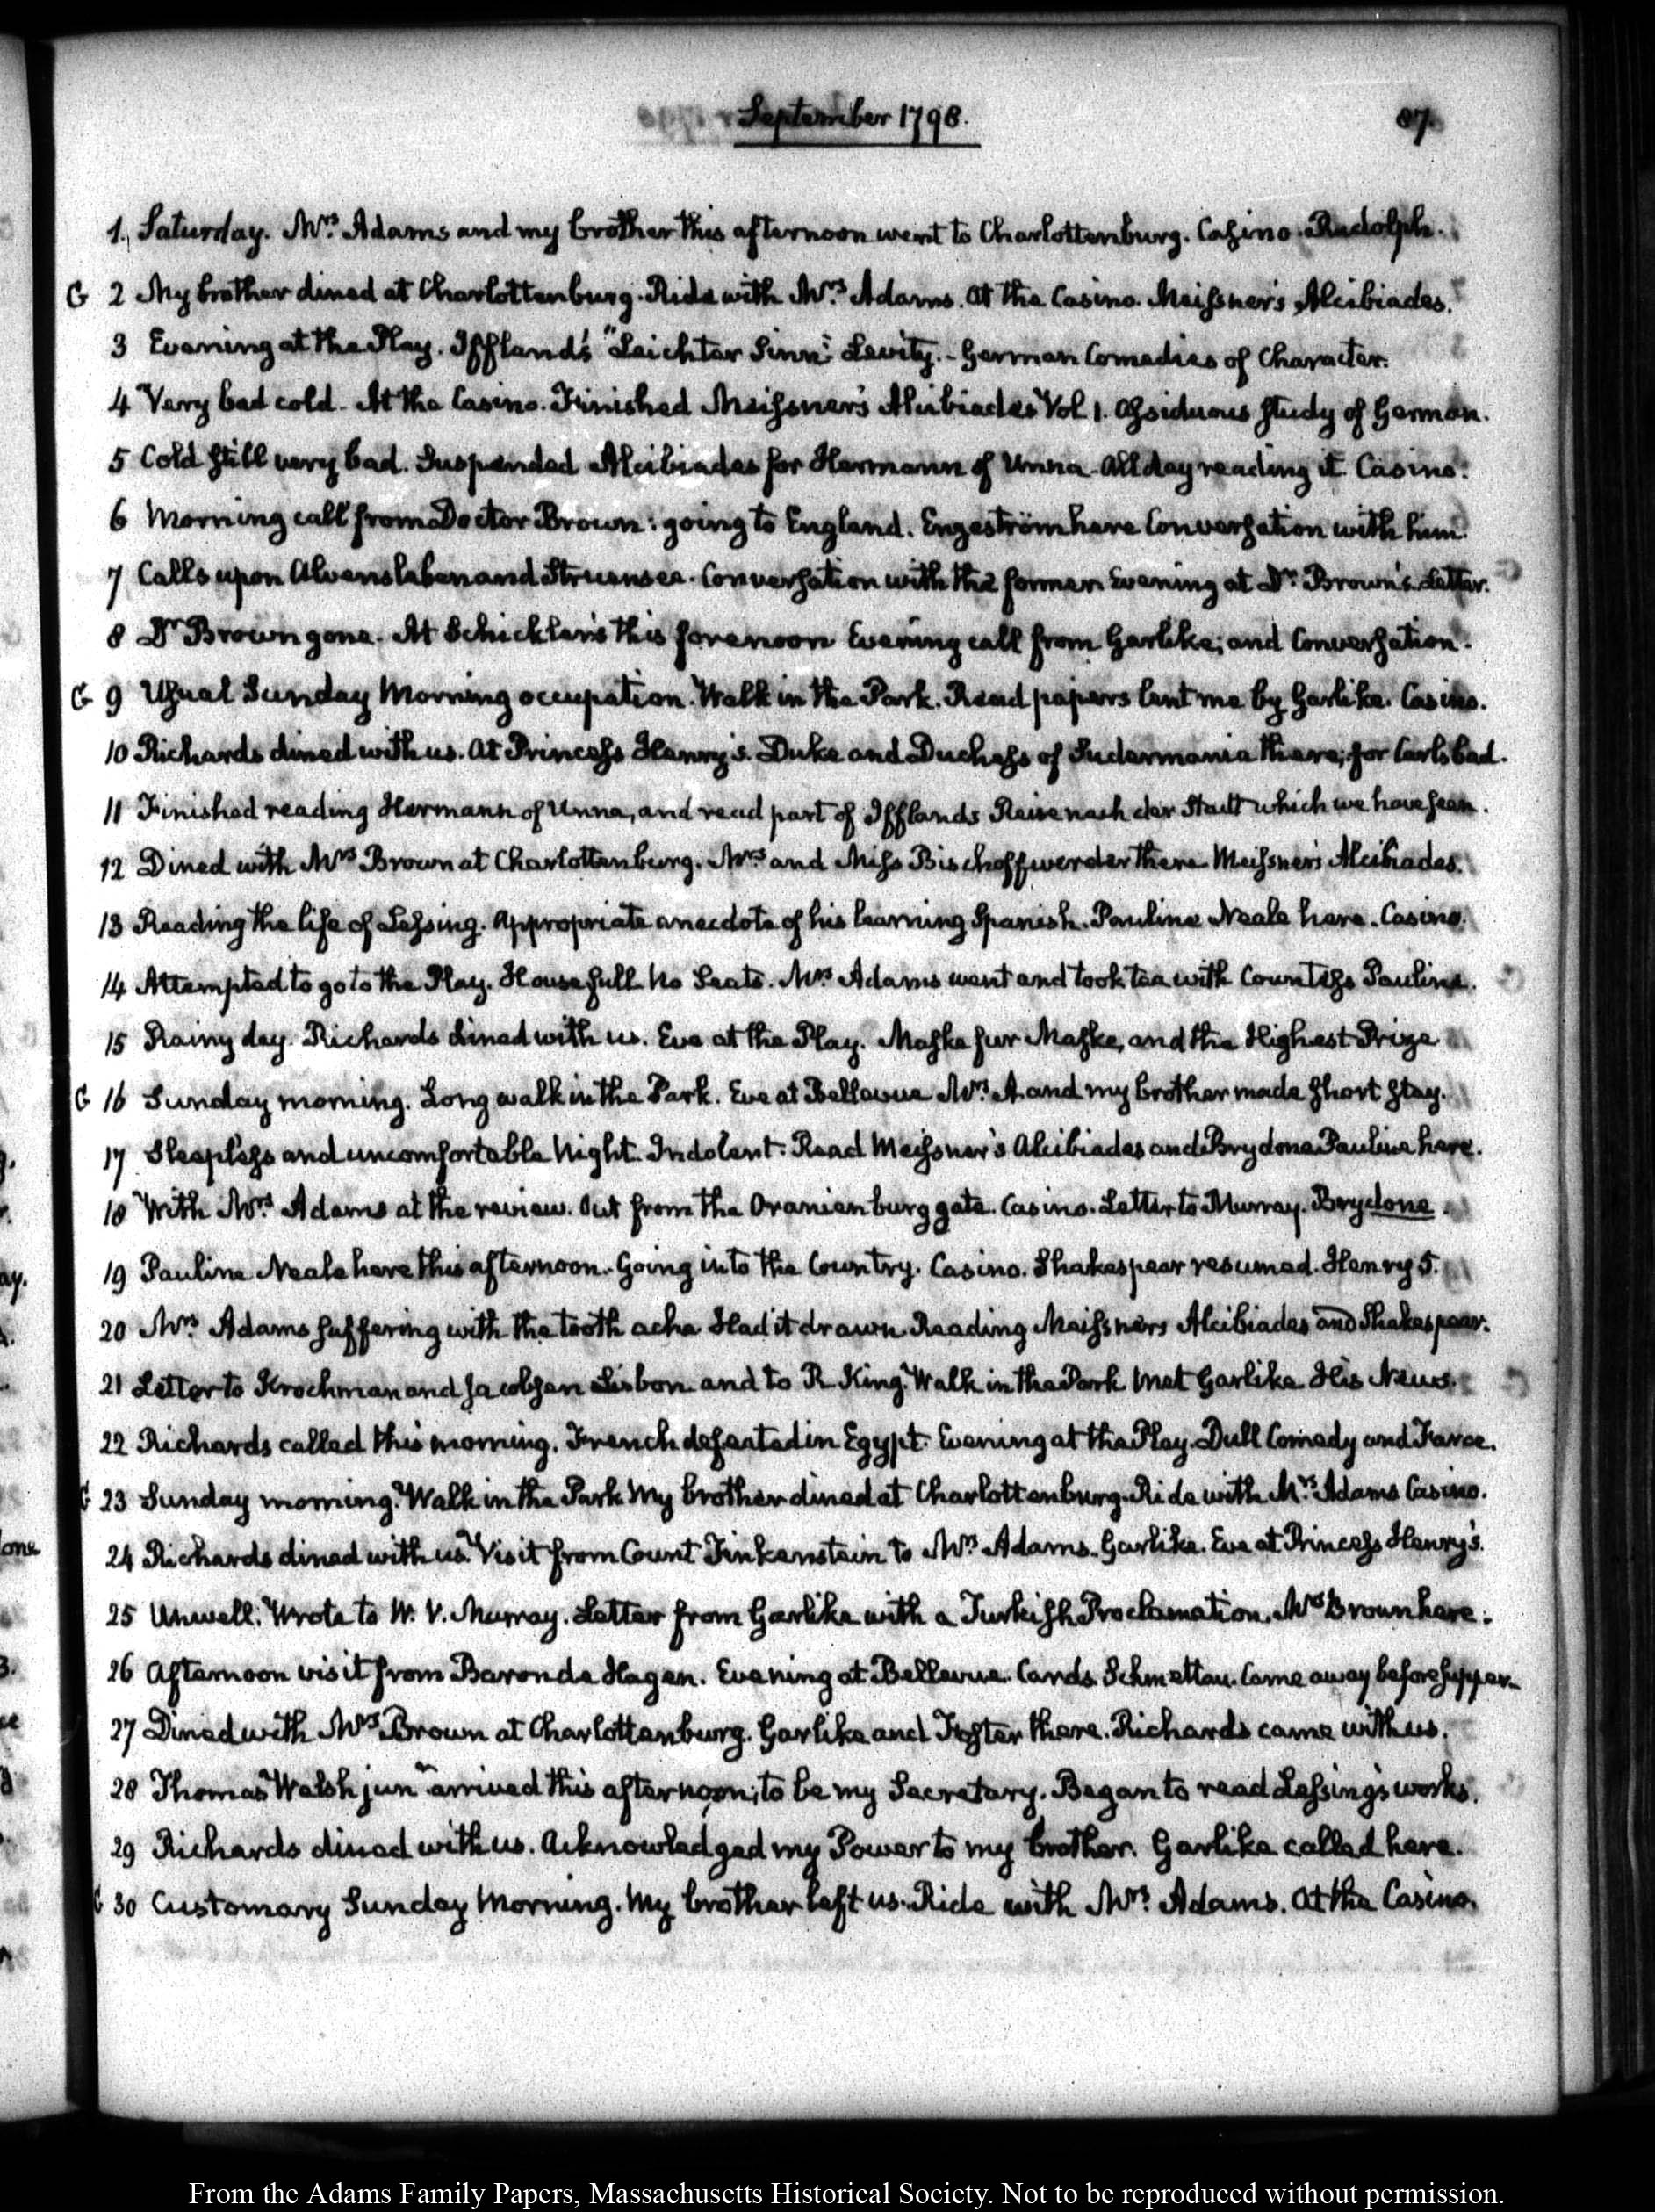 September 1798.
87.
1. Saturday. Mrs. Adams and my brother this afternoon went to Charlottenburg. Casino. Rudolph.
G 2 My brother dined at Charlottenburg. Ride with Mrs. Adams. At the Casino. Meissner's Alcibiades.
3 Evening at the Play. Iffland's "Leichter Sinn" Levity. - German Comedies of Character.
4 Very bad cold. At the Casino. Finished Meissner's Alcibiades Vol. 1. Assiduous study of German.
5 Cold still very bad. Suspended Alcibiades for Hermann of Unna. All day reading it. Casino.
6 Morning call from Doctor Brown: going to England. Engeström here Conversation with him.
7 Calls upon Alvensleben and Struensee. Conversation with the former. Evening at Dr. Brown's. Letter.
8 Dr Brown gone. At Schickler's this forenoon Evening call from Garlike; and Conversation.
G 9 Usual Sunday Morning occupation. Walk in the Park. Read papers lent me by Garlike. Casino.
10 Richards dined with us. At Princess Henry's. Duke and Duchess of Sudermania there; for Carlsbad.
11 Finished reading Hermann of Unna, and read part of Ifflands Reise nach der Stadt which we have seen.
12 Dined with Mrs Brown at Charlottenburg. Mrs and Miss Bischoffwerder there Meissner's Alcibiades.
13 Reading the life of Lessing. Appropriate anecdote of his learning Spanish. Pauline Neale here. Casino.
14 Attempted to go to the Play. House full. No Seats. Mrs Adams went and took tea with Countess Pauline.
15 Rainy day. Richards dined with us. Eve at the Play. Maske fur Maske, and the Highest Prize
G 16 Sunday morning. Long walk in the Park. Eve at Bellevue Mrs. A and my brother made short stay.
17 Sleepless and uncomfortable Night. Indolent. Read Meissner's Alcibiades and Brydone Pauline here.
18 With Mrs. Adams at the review. Out from the Oranienburg gate. Casino. Letter to Murray. Brydone.
19 Pauline Neale here this afternoon. Going into the Country. Casino. Shakespear resumed. Henry 5.
20 Mrs. Adams suffering with the tooth ache Had it drawn. Reading Meissners Alcibiades and Shakespear.
21 Letter to Krochman and Jacobsen Lisbon and to R King. Walk in the Park met Garlike His News.
22 Richards called this morning. French defeated in Egypt. Evening at the Play. Dull Comedy and Farce.
G 23 Sunday morning. Walk in the Park My brother dined at Charlottenburg. Ride with Mrs. Adams Casino.
24 Richards dined with us. Visit from Count Finkenstein to Mrs Adams. Garlike. Eve at Princess Henry's.
25 Unwell. Wrote to W. V. Murray. Letter from Garlike with a Turkish Proclamation. Mrs Brown here.
26 Afternoon visit from Baron de Hagen. Evening at Bellevue. Cards. Schmettau. Came away before supper.
27 Dined with Mrs Brown at Charlottenburg. Garlike and Foster there. Richards came with us.
28 Thomas Welsh junr arrived this afternoon; to be my Secretary. Began to read Lessing's works.
29 Richards dined with us. Acknowledged my Power to my brother. Garlike called here.
G 30 Customary Sunday Morning. My brother left us. Ride with Mrs. Adams. At the Casino.
From the Adams Family Papers, Massachusetts Historical Society. Not to be reproduced without permission.